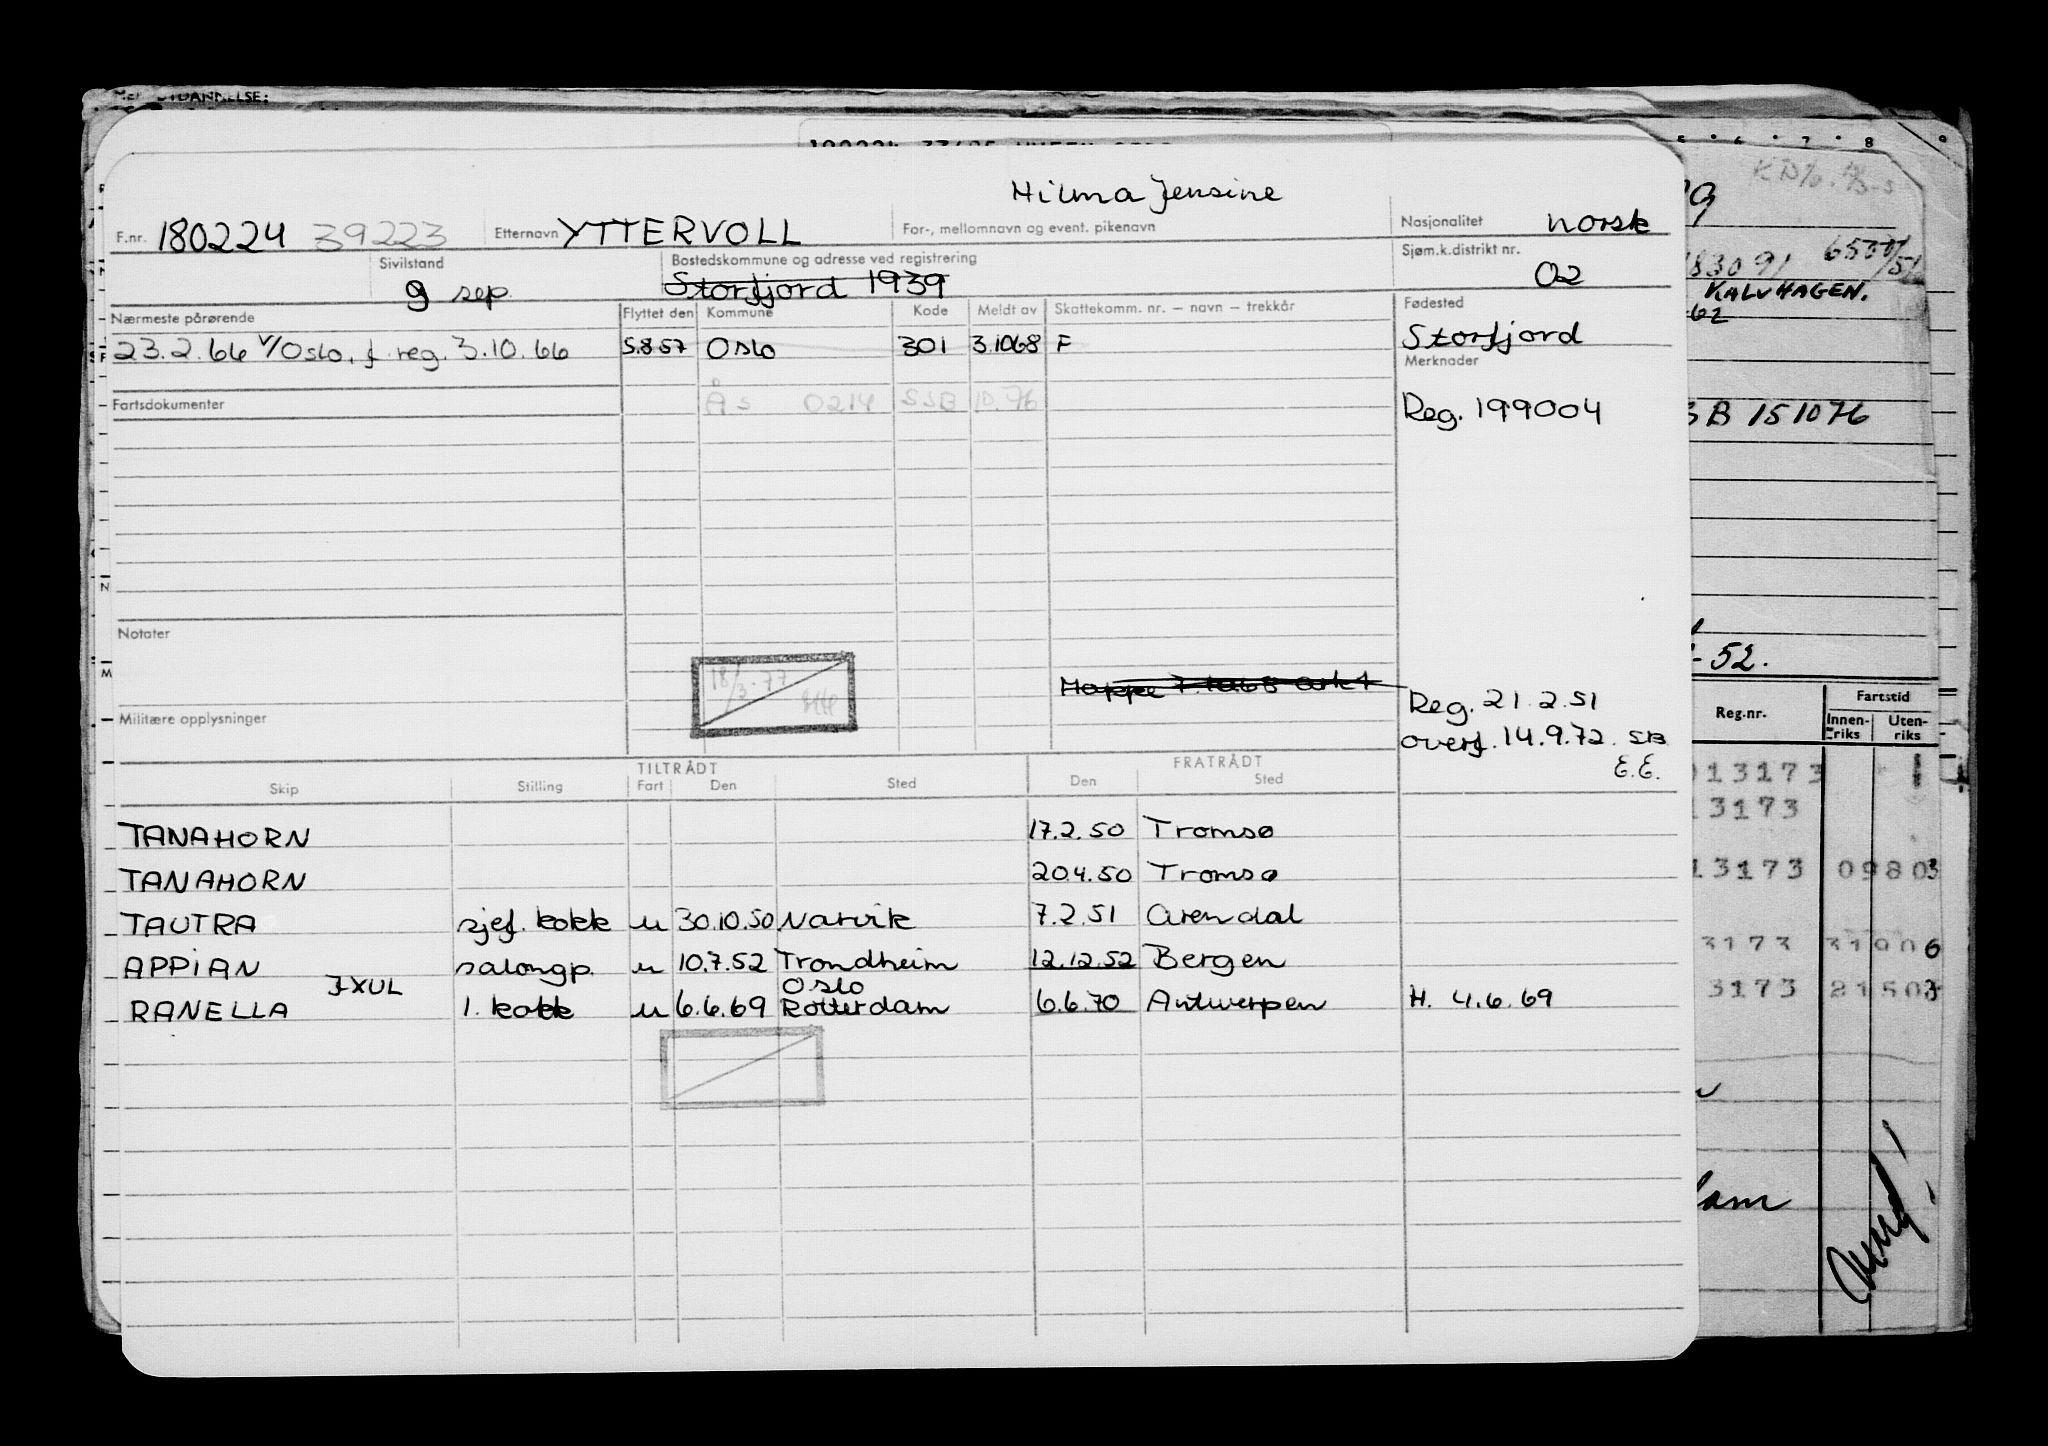 Hilma Jensine
F.nr. 180224 39223 Etternavn YTTERVOLL For-, mellomnavn og event. pikenavn Nasjonalitet norsk
Sivilstand g sep. Bostedskommune og adresse ved registrering Storfjord 1939 Sjøm.k.distrikt nr. 02
Nærmeste pårørende Flyttet den Kommune Kode Meldt av Skattekomm. nr. – navn – trekkår Fødested
23.2.66 v/Oslo, f. reg. 3.10.66 5.8.57 Oslo 301 3.1068 F Storfjord
Merknader
Fartsdokumenter Ås 0214 SSB 10.76 Reg. 199004
Notater
18/3.77
Mappe 7.1068
Reg. 21.2.51
Militære opplysninger
overf. 14.9.72. SB
E.E.
TILTRÅDT FRATRÅDT
Skip Stilling Fart Den Sted Den Sted
TANAHORN 17.2.50 Tromsø
TANAHORN 20.4.50 Tromsø
TAUTRA sjef. kokk u 30.10.50 Narvik 7.2.51 Arendal
APPIAN salongp. u 10.7.52 Trondheim 12.12.52 Bergen
JXUL Oslo
RANELLA 1. kokk u 6.6.69 Rotterdam 6.6.70 Antwerpen H. 4.6.69
5 6 7 8 9
18309/ 6500/51
KALVHAGEN.
62
B 151076
- 52.
Reg.nr. Fartstid
Innen-riks Uten-riks
013173
13173
13173 09803
3173 31906
3173 21503